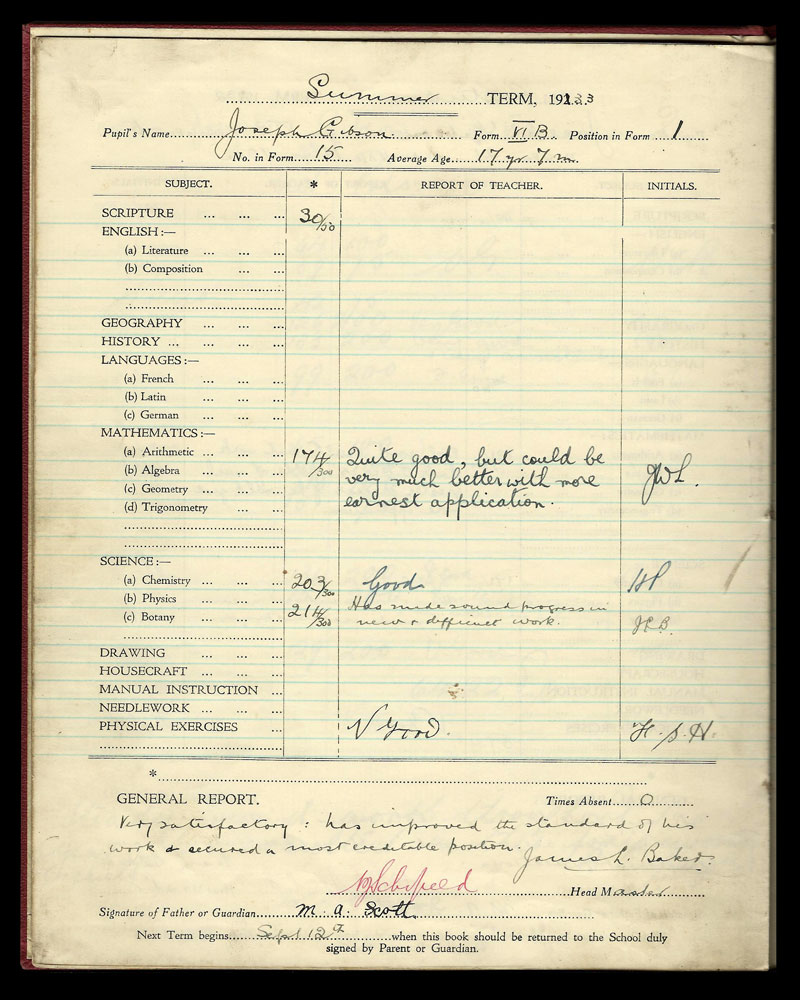 Summer TERM, 1933
Pupil's Name Joseph Gibson Form VI B. Position in Form 1
No. in Form 15 Average Age 17 yr 7 m.
SUBJECT. * REPORT OF TEACHER. INITIALS.
SCRIPTURE ... ... ... 30/50
ENGLISH :—
(a) Literature ... ... ...
(b) Composition ... ...
GEOGRAPHY ... ... ...
HISTORY ... ... ... ...
LANGUAGES :—
(a) French ... ... ...
(b) Latin ... ... ...
(c) German ... ... ...
MATHEMATICS :—
(a) Arithmetic ... ... ... 174/300 Quite good, but could be
(b) Algebra ... ... ... very much better with more JWL.
(c) Geometry ... ... ... earnest application.
(d) Trigonometry ... ...
SCIENCE :—
(a) Chemistry ... ... ... 203/300 Good
(b) Physics ... ... ... Has made sound progress in
(c) Botany ... ... ... 214/300 new & difficult work.
DRAWING ... ... ...
HOUSECRAFT ... ... ...
MANUAL INSTRUCTION ...
NEEDLEWORK ... ... ...
PHYSICAL EXERCISES ... V Good.
*
GENERAL REPORT. Times Absent 0
Very satisfactory : has improved the standard of his
work & secured a most creditable position. James L. Baker.
Head Master
Signature of Father or Guardian M. A. Scott
Next Term begins Sept 12th when this book should be returned to the School duly
signed by Parent or Guardian.